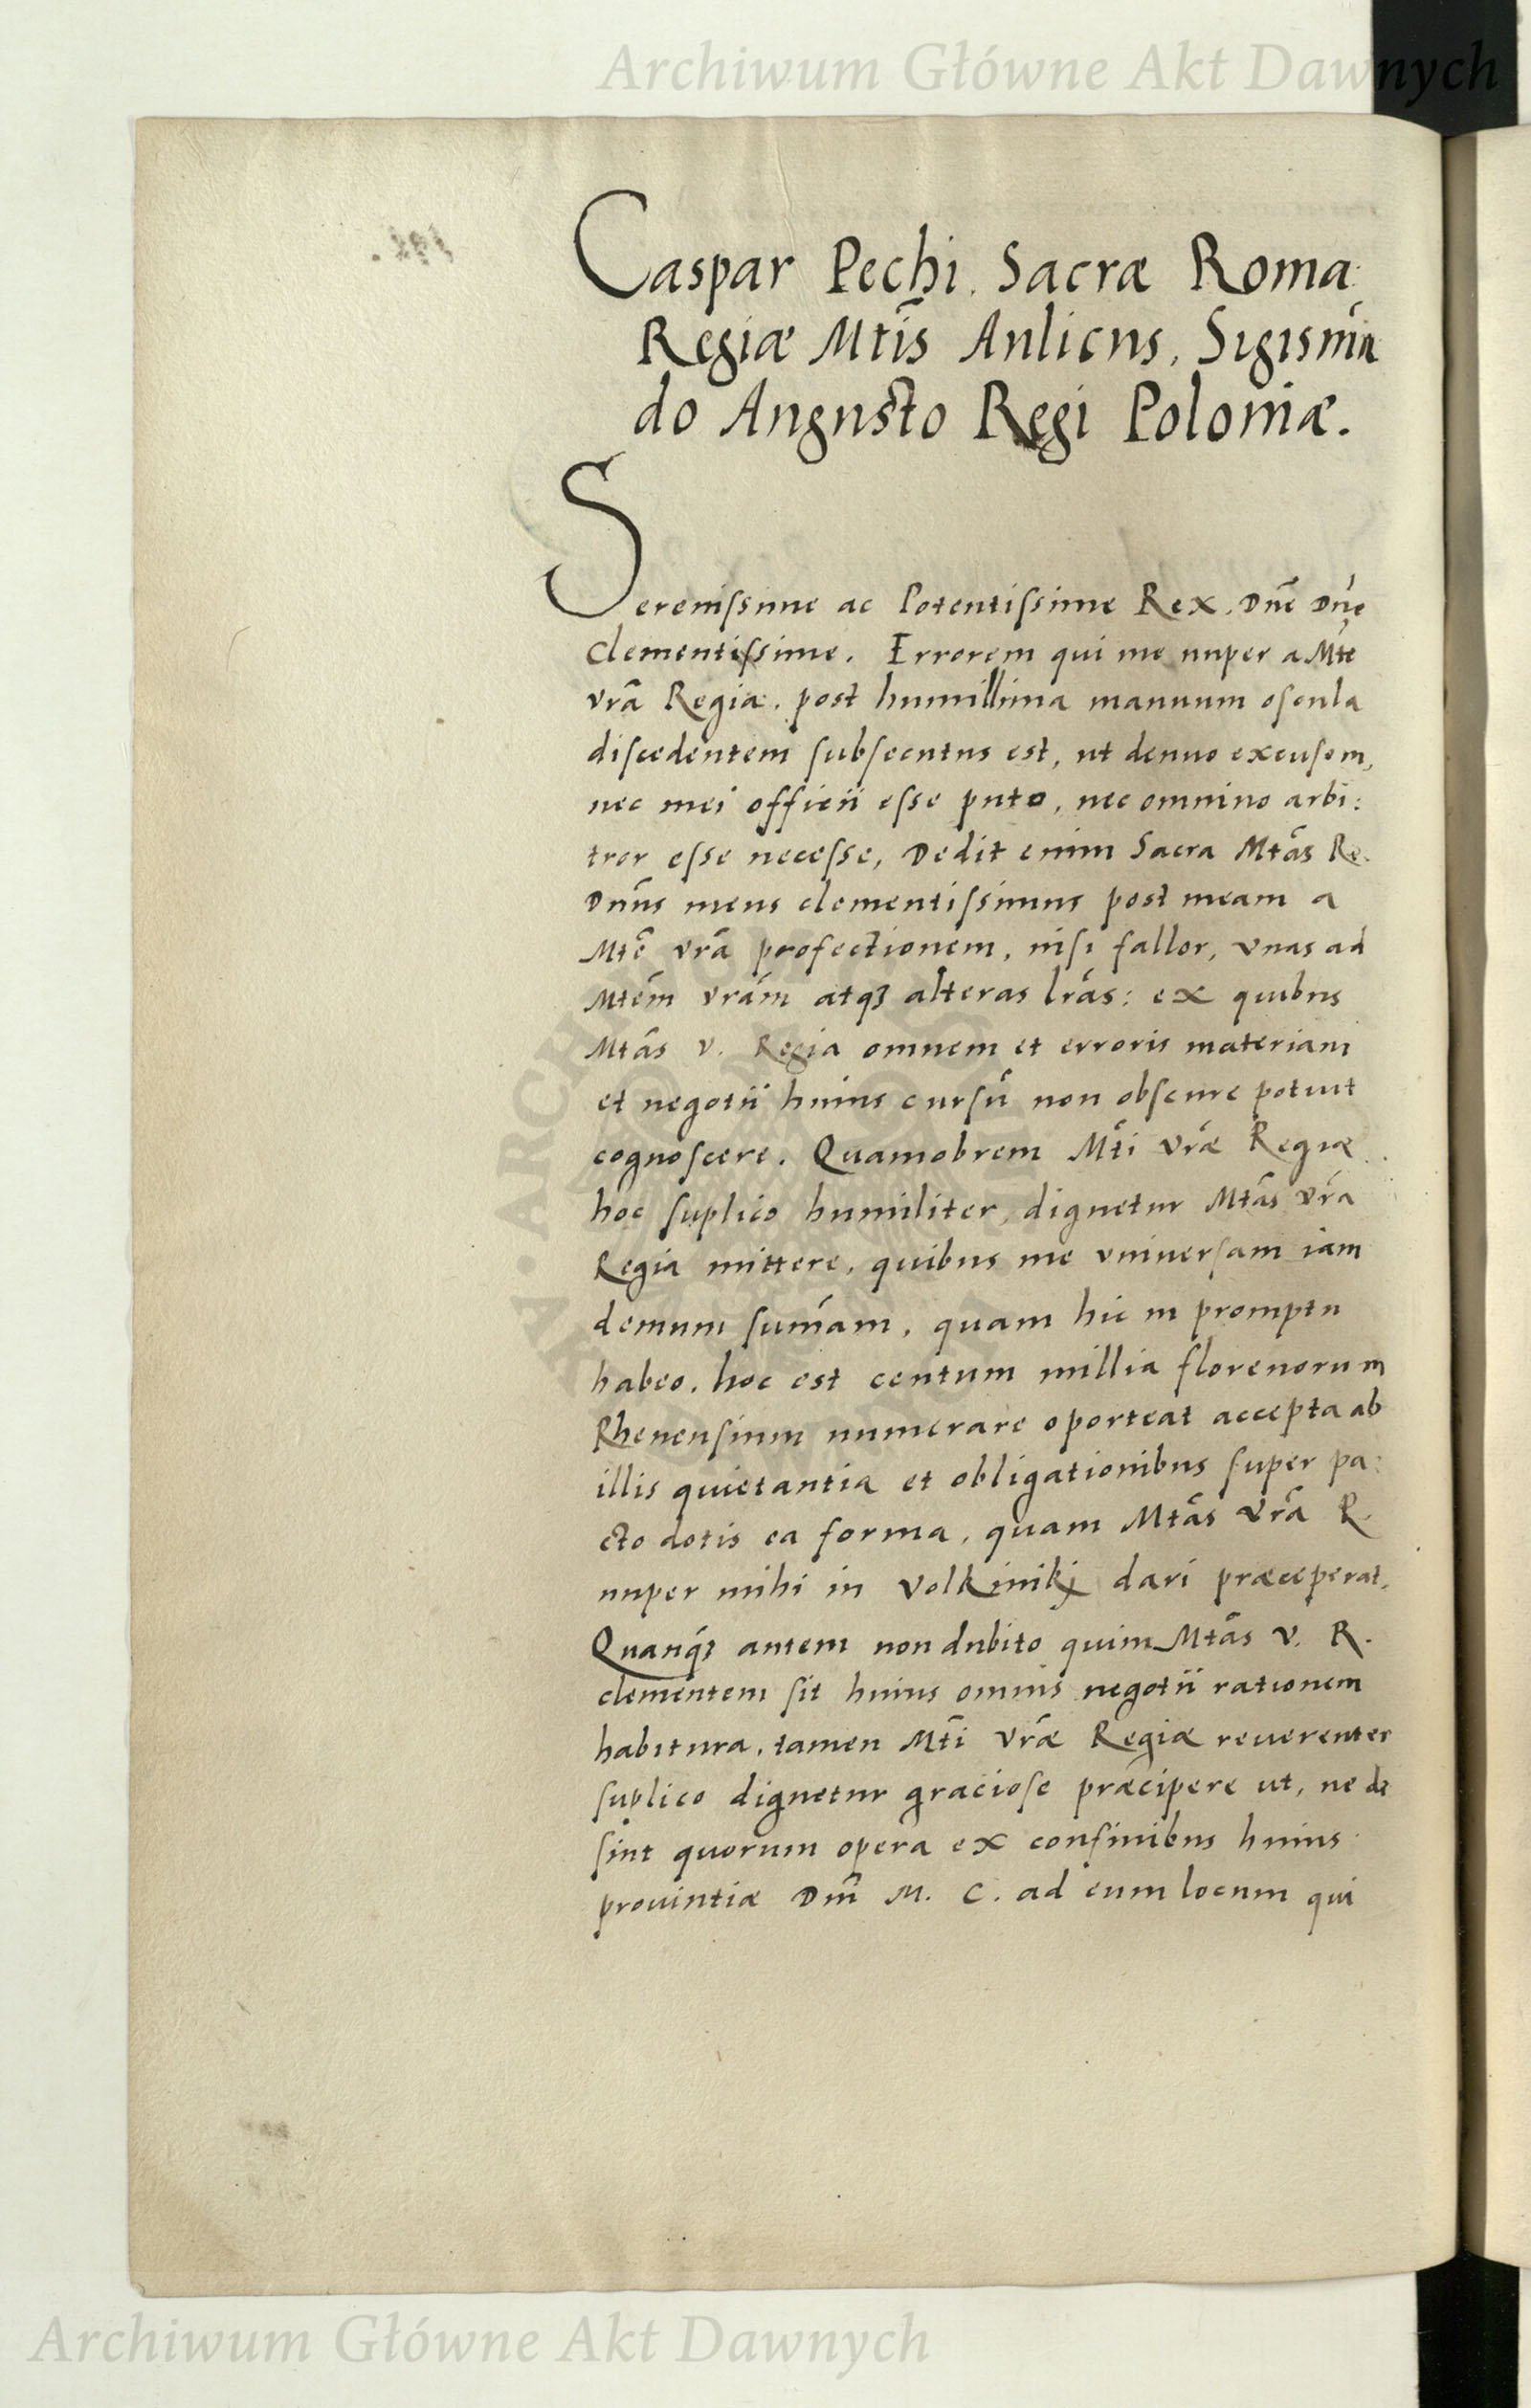 Archiwum Główne Akt Dawnych
Caspar Pechi. Sacræ Roma:
Regiæ Mtīs Aulicus, Sigismũ
do Augusto Regi Poloniæ.
Serenissime ac Potentissime Rex, Dne Dne
Clementissime. Errorem qui me nuper a Mte
vrã Regia. post humillima manuum oscula
discedentem subsecutus est, ut denuo excusem,
nec mei officii esse puto, nec omnino arbi:
tror esse necesse, Dedit enim Sacra Mtãs Re.
Dnũs meus clementissimus post meam a
Mtẽ vrã profectionem, nisi fallor, vnas ad
Mtẽm vrãm atqꝫ alteras lrãs: ex quibus
Mtãs v. Regia omnem et erroris materiam
et negotii huius cursũ non obscure potuit
cognoscere. Quamobrem Mti vræ Regiæ
hoc suplico humiliter, dignetur Mtãs vrã
Regia mittere, quibus me vniuersam iam
demum sum̃am, quam hic in promptu
habeo. hoc est centum millia florenorum
Rhenensium numerare oporteat accepta ab
illis quietantia et obligationibus super pa:
cto dotis ea forma, quam Mtãs vrã R.
nuper mihi in Volkinikj dari præceperat.
Quanqꝫ autem non dubito quim Mtãs v. R.
clementem sit huius omnis negotii rationem
habitura, tamen Mti vræ Regiæ reuerenter
suplico dignetur graciose præcipere ut, ne de
sint quorum opera ex confinibus huius
prouintiæ Dni M. C. ad eum locum qui
Archiwum Główne Akt Dawnych